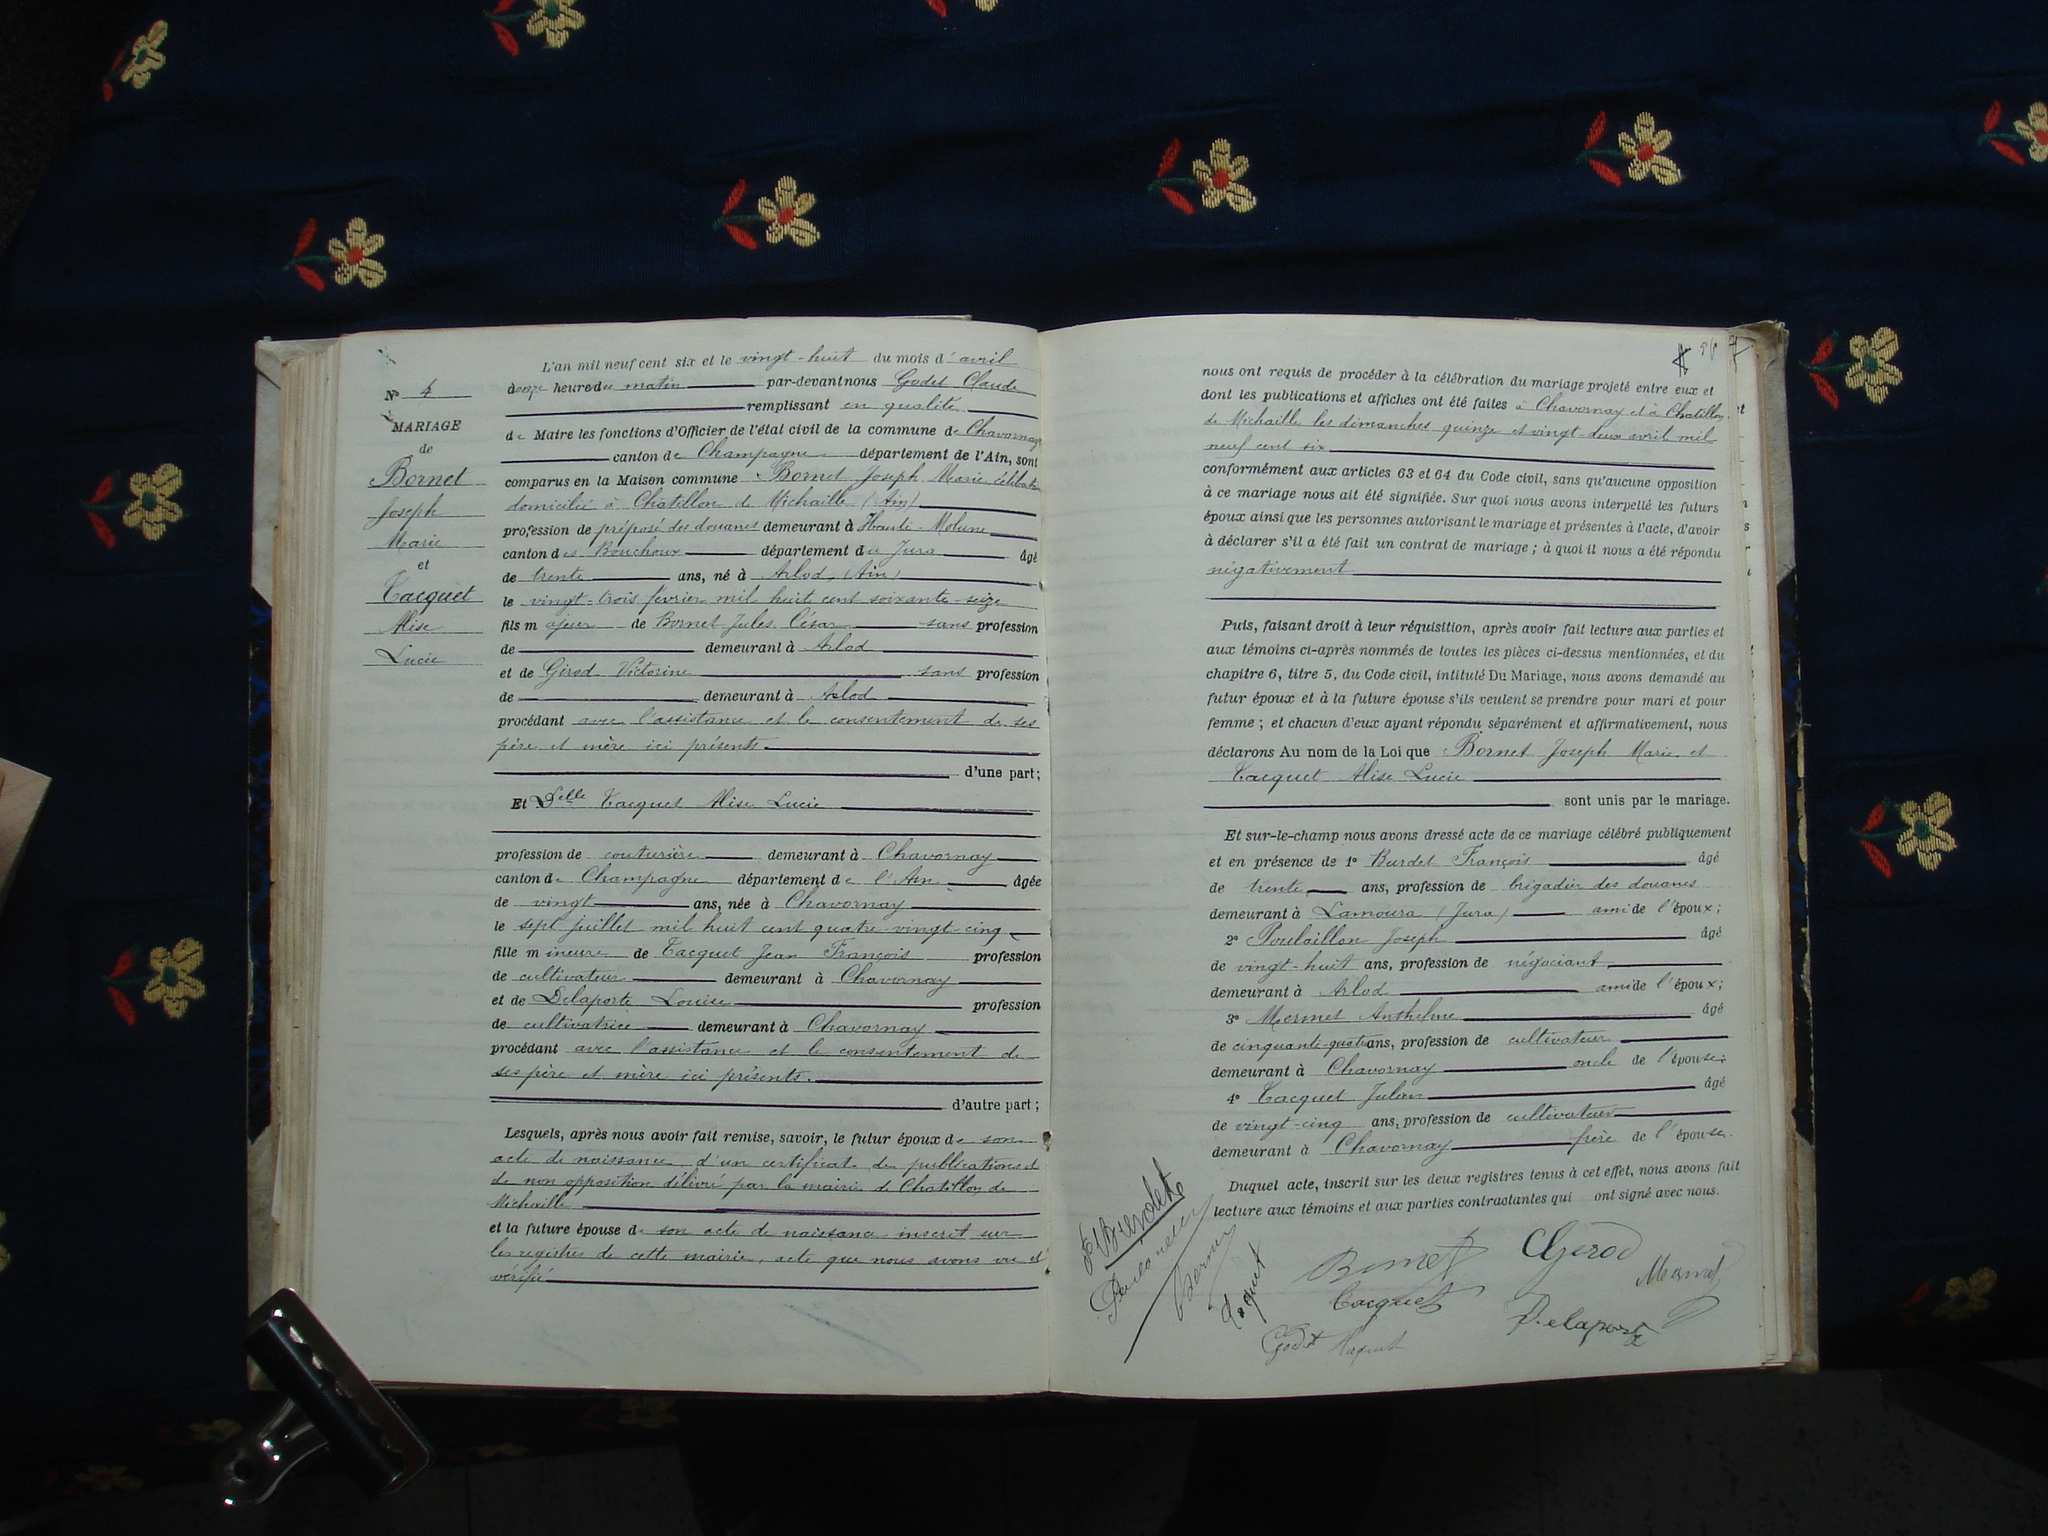 Nº 4
MARIAGE
de
Bornet
Joseph
Marie
et
Tacquet
Alise
Lucie
L'an mil neuf cent six et le vingt-huit du mois d'avril
à onze heure du matin par-devant nous Godet Claude
remplissant en qualité
de Maire les fonctions d'Officier de l'état civil de la commune de Chavornay
canton de Champagne département de l'Ain, sont
comparus en la Maison commune Bornet Joseph Marie célibataire
domicilié à Chatillon de Michaille (Ain)
profession de préposé des douanes demeurant à Haute-Molune
canton des Bouchoux département du Jura âgé
de trente ans, né à Arlod, (Ain)
le vingt-trois février mil huit cent soixante-seize
fils majeur de Bornet Jules César sans profession
de demeurant à Arlod
et de Girod Victorine sans profession
de demeurant à Arlod
procédant avec l'assistance et le consentement de ses
père et mère ici présents.
d'une part;
Et Delle Tacquet Alise Lucie
profession de couturière demeurant à Chavornay
canton de Champagne département de l'Ain âgée
de vingt ans, née à Chavornay
le sept juillet mil huit cent quatre-vingt-cinq
fille mineure de Tacquet Jean François profession
de cultivateur demeurant à Chavornay
et de Delaporte Louise profession
de cultivatrice demeurant à Chavornay
procédant avec l'assistance et le consentement de
ses père et mère ici présents.
d'autre part;
Lesquels, après nous avoir fait remise, savoir, le futur époux de son
acte de naissance d'un certificat de publications et
de non opposition délivré par la mairie de Chatillon de
Michaille
et la future épouse de son acte de naissance inscrit sur
les registres de cette mairie, acte que nous avons vu et
vérifié
nous ont requis de procéder à la célébration du mariage projeté entre eux et
dont les publications et affiches ont été faites à Chavornay et à Chatillon
de Michaille les dimanches quinze et vingt deux avril mil
neuf cent six
conformément aux articles 63 et 64 du Code civil, sans qu'aucune opposition
à ce mariage nous ait été signifiée. Sur quoi nous avons interpellé les futurs
époux ainsi que les personnes autorisant le mariage et présentes à l'acte, d'avoir
à déclarer s'il a été fait un contrat de mariage; à quoi il nous a été répondu
négativement
Puis, faisant droit à leur réquisition, après avoir fait lecture aux parties et
aux témoins ci-après nommés de toutes les pièces ci-dessus mentionnées, et du
chapitre 6, titre 5, du Code civil, intitulé Du Mariage, nous avons demandé au
futur époux et à la future épouse s'ils veulent se prendre pour mari et pour
femme; et chacun d'eux ayant répondu séparément et affirmativement, nous
déclarons Au nom de la Loi que Bornet Joseph Marie et
Tacquet Alise Lucie
sont unis par le mariage.
Et sur-le-champ nous avons dressé acte de ce mariage célébré publiquement
et en présence de 1º Burdet François âgé
de trente ans, profession de brigadier des douanes
demeurant à Lamoura (Jura) ami de l'époux;
2º Poulaillon Joseph âgé
de vingt-huit ans, profession de négociant
demeurant à Arlod ami de l'époux;
3º Mermet Anthelme âgé
de cinquante-quatre ans, profession de cultivateur
demeurant à Chavornay oncle de l'épouse;
4º Tacquet Julien âgé
de vingt-cinq ans, profession de cultivateur
demeurant à Chavornay frère de l'épouse.
Duquel acte, inscrit sur les deux registres tenus à cet effet, nous avons fait
lecture aux témoins et aux parties contractantes qui ont signé avec nous.
Burdet
Bornet
Girod
Mermet
Tacquet
Delaporte
Godet